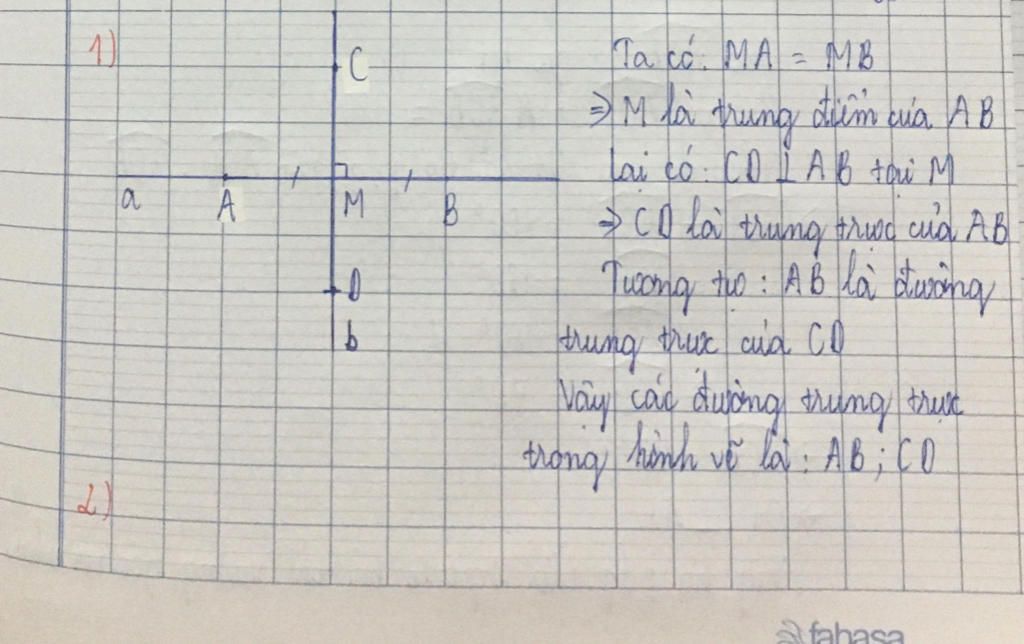 1)
C
a
A
M
B
D
b
Ta có: MA = MB
=> M là trung điểm của AB
Lại có: CD ⊥ AB tại M
=> CD là trung trực của AB
Tương tự: AB là đường
trung trực của CD
Vậy các đường trung trực
trong hình vẽ là: AB; CD
2)
fahasa